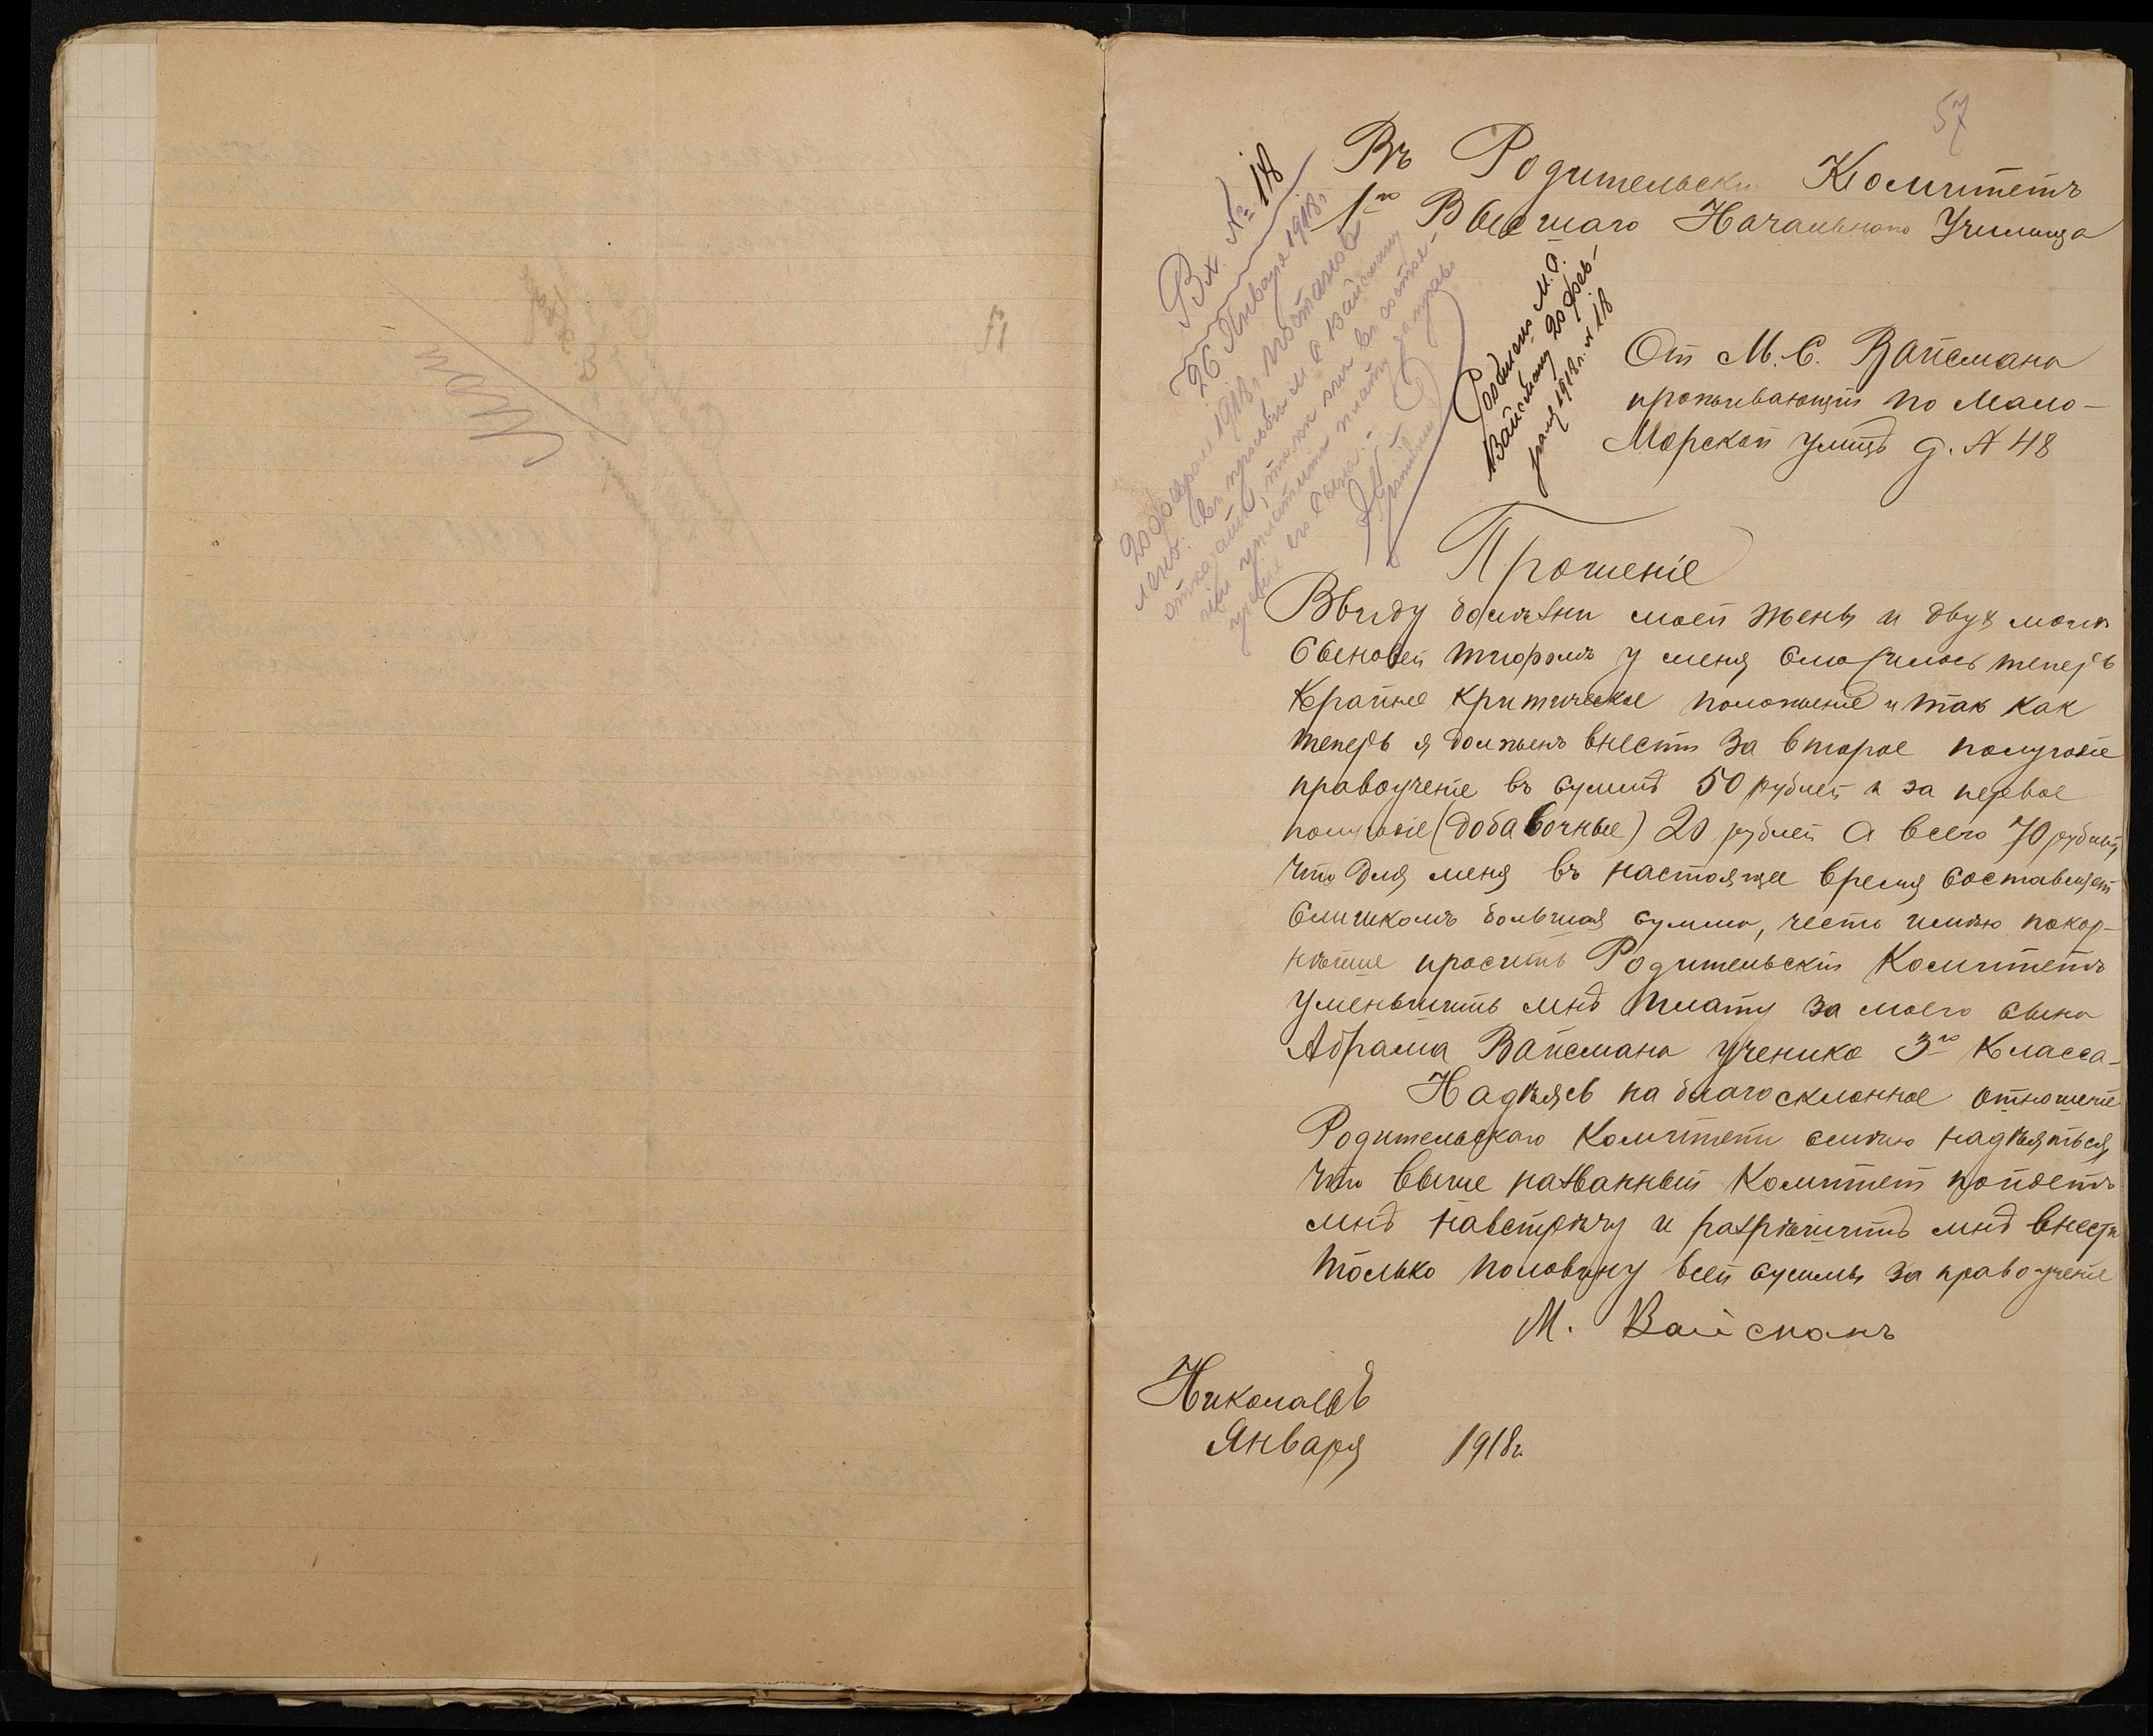 57
Въ Родительскій Комитетъ
1го Высшаго Начальнаго Училища
Вх. № 18
26 Января 1918 г.
20 февраля 1918 г. постанов
лено: въ просьбѣ М. С. Вайсману
отказать, такъ какъ въ состоя-
ніи уплатить плату за право
ученія его сына.
Сообщено М. С.
Вайсману 20 фев-
раля 1918 г. № 18
От М. С. Вайсмана
проживающій по Мало-
Морской улицѣ д. № 48
Прошеніе
Ввиду болѣзни моей жены и двух моих
сыновей тифомъ у меня сложилось теперь
крайне критическое положеніе и так как
теперь я долженъ внести за второе полугодіе
правоученіе въ суммѣ 50 рублей и за первое
полугодіе (добавочные) 20 рублей а всего 70 рублей,
что для меня въ настоящее время составляет
слишкомъ большая сумма, честь имѣю покор-
нѣйше просить Родительскій Комитетъ
уменьшить мнѣ плату за моего сына
Абрама Вайсмана ученика 3го класса.
Надѣясь на благосклонное отношеніе
Родительскаго Комитета смѣю надѣяться,
что выше названный Комитет пойдетъ
мнѣ навстрѣчу и разрѣшитъ мнѣ внести
только половину всей суммы за правоученіе
М. Вайсманъ
Николаевъ
Января 1918 г.